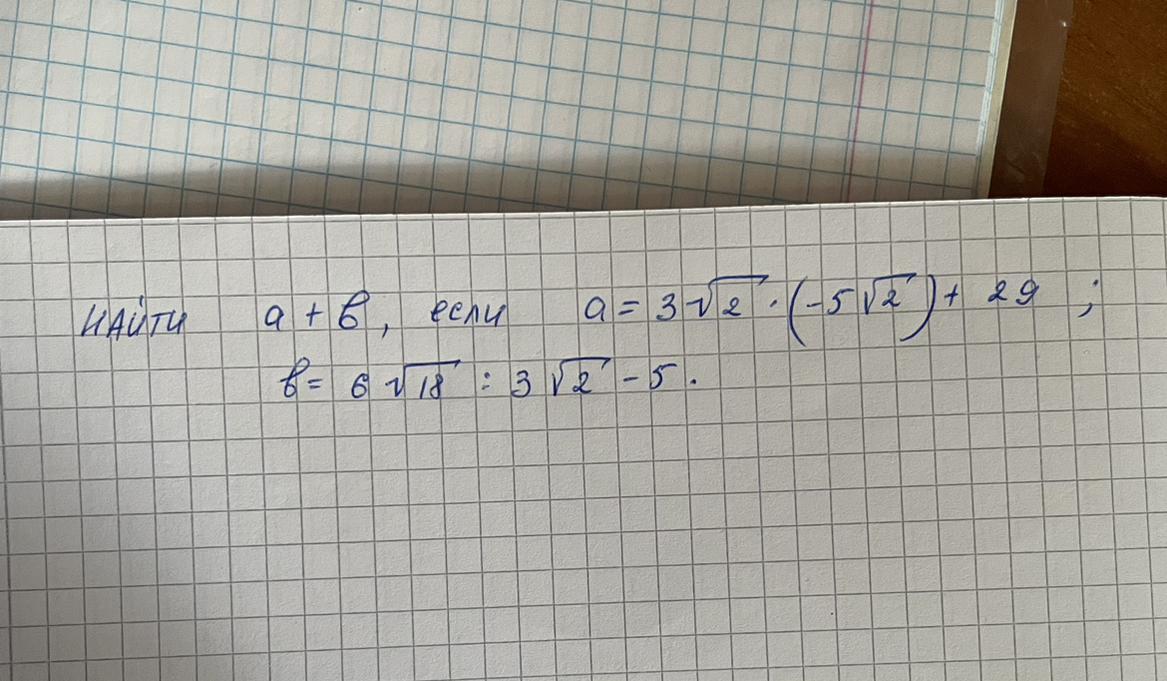 НАЙТИ a + b, если a = 3√2 · (-5√2) + 29 ;
b = 6√18 : 3√2 - 5.